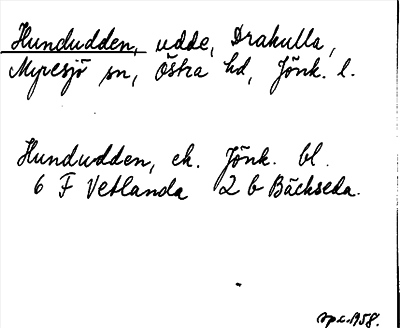 Hundudden, udde, Drakulla,
Myresjö sn, Östra hd, Jönk. l.
Hundudden, ek. Jönk. bl.
6 F Vetlanda 2 b Bäckseda.
1958.